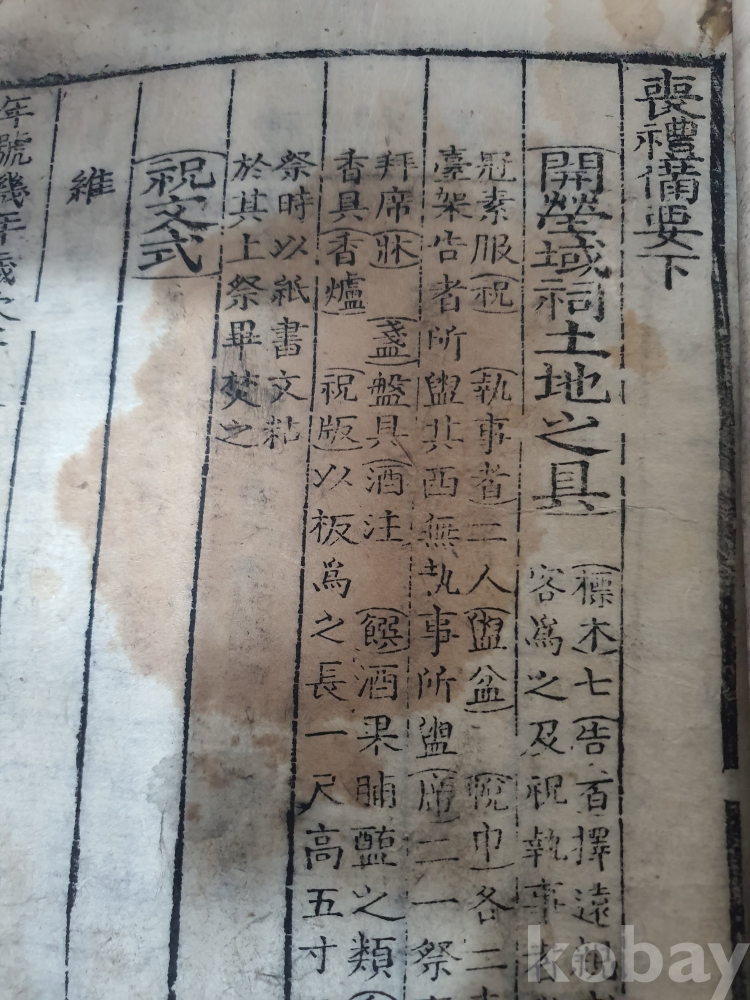 喪禮備要下
開塋域祠土地之具
標木七告者擇遠親
客爲之及祝執事者
冠素服祝 執事者二人盥盆 帨巾各二
臺架告者所盥其西無執事所盥席二一祭
拜席牀 盞盤具酒注 饌酒果脯醢之類
香具香爐 祝版以板爲之長一尺高五寸
祭時以紙書文粘
於其上祭畢焚之
祝文式
維
年號幾年歲次
kobay